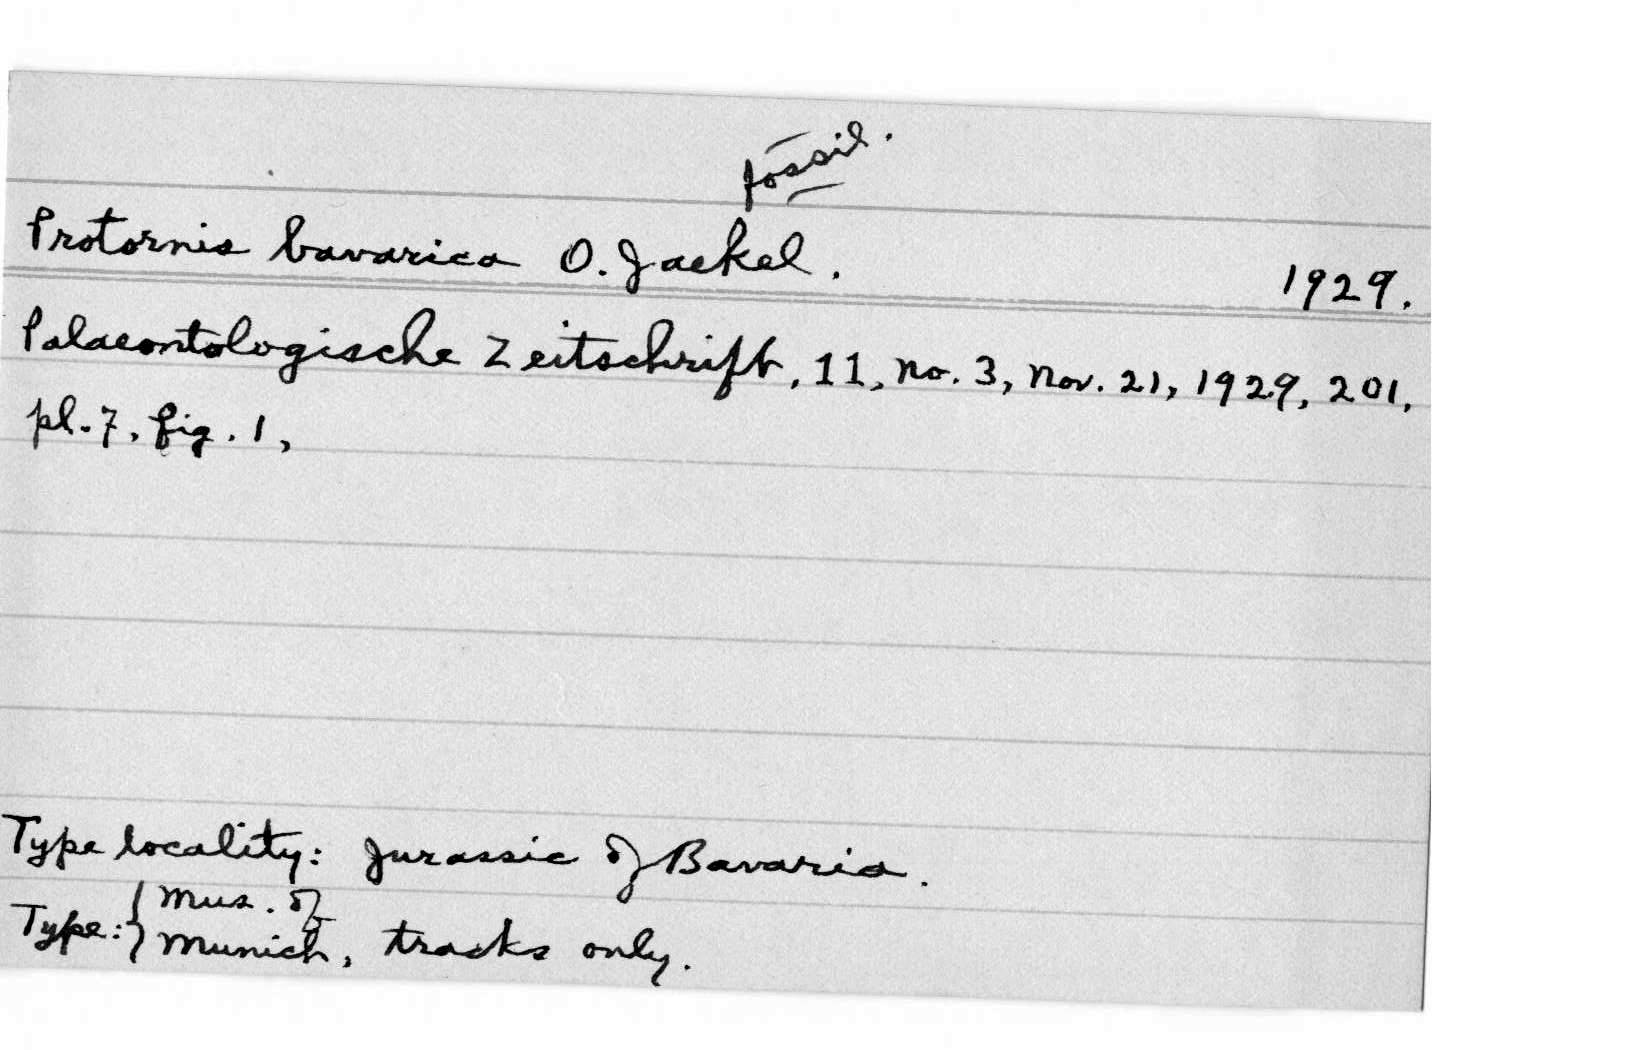 fossil.
Protornis bavarica O. Jaekel.
1929.
Palaeontologische Zeitschrift, 11, no. 3, Nov. 21, 1929, 201,
pl. 7, fig. 1,
Type locality: Jurassic of Bavaria.
Type: { Mus. of
Munich, tracks only.